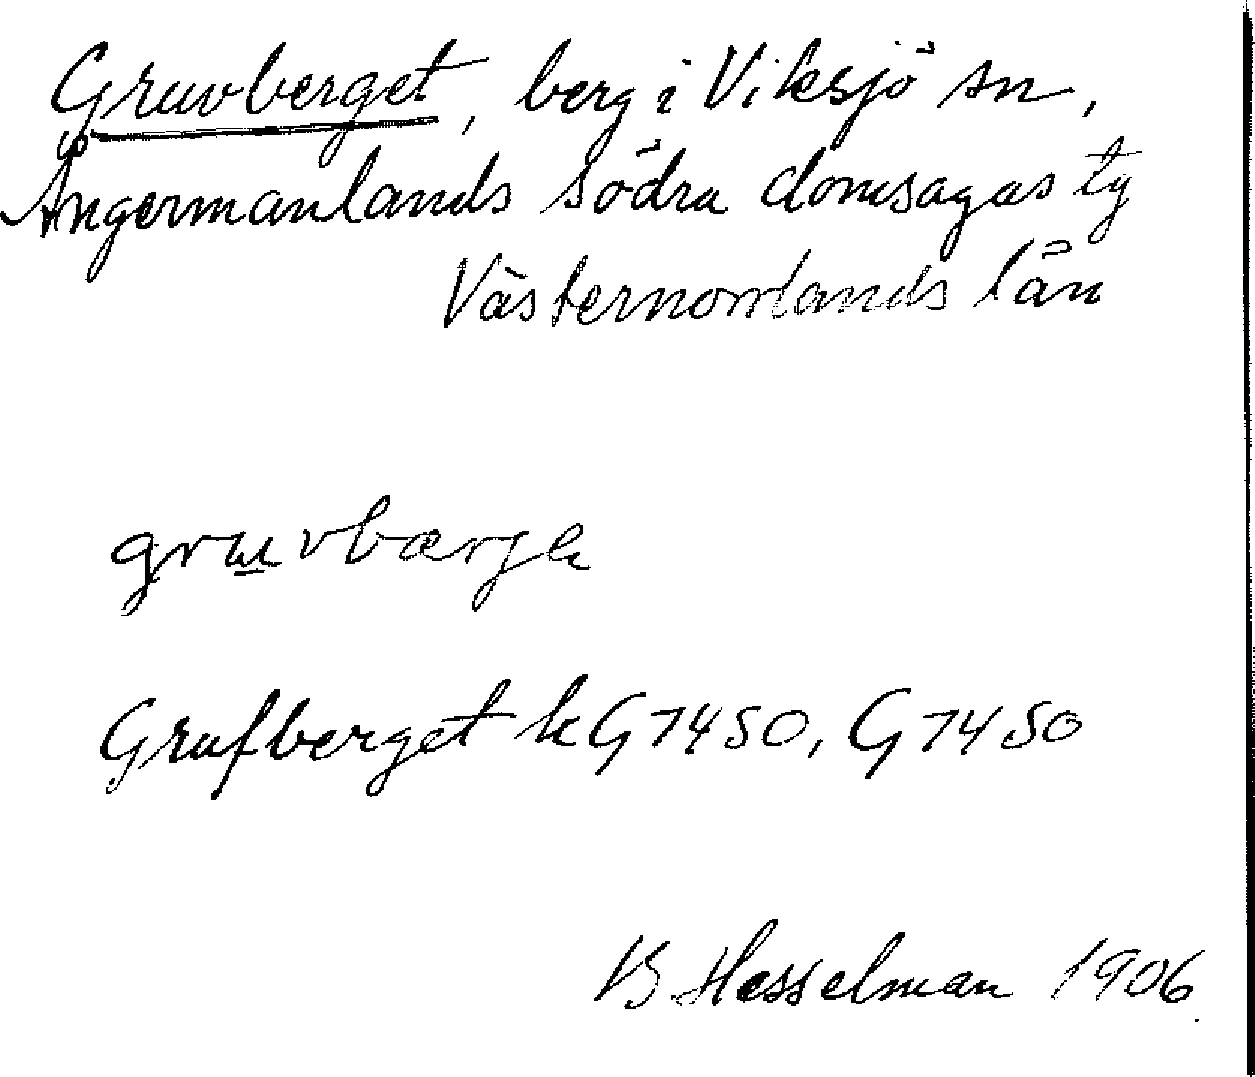 Gruvberget, berg i Viksjö sn,
Ångermanlands södra domsagas tg
Västernorrlands län
gruvbærja
Grufberget kG7450, G7450
B Hesselman 1906